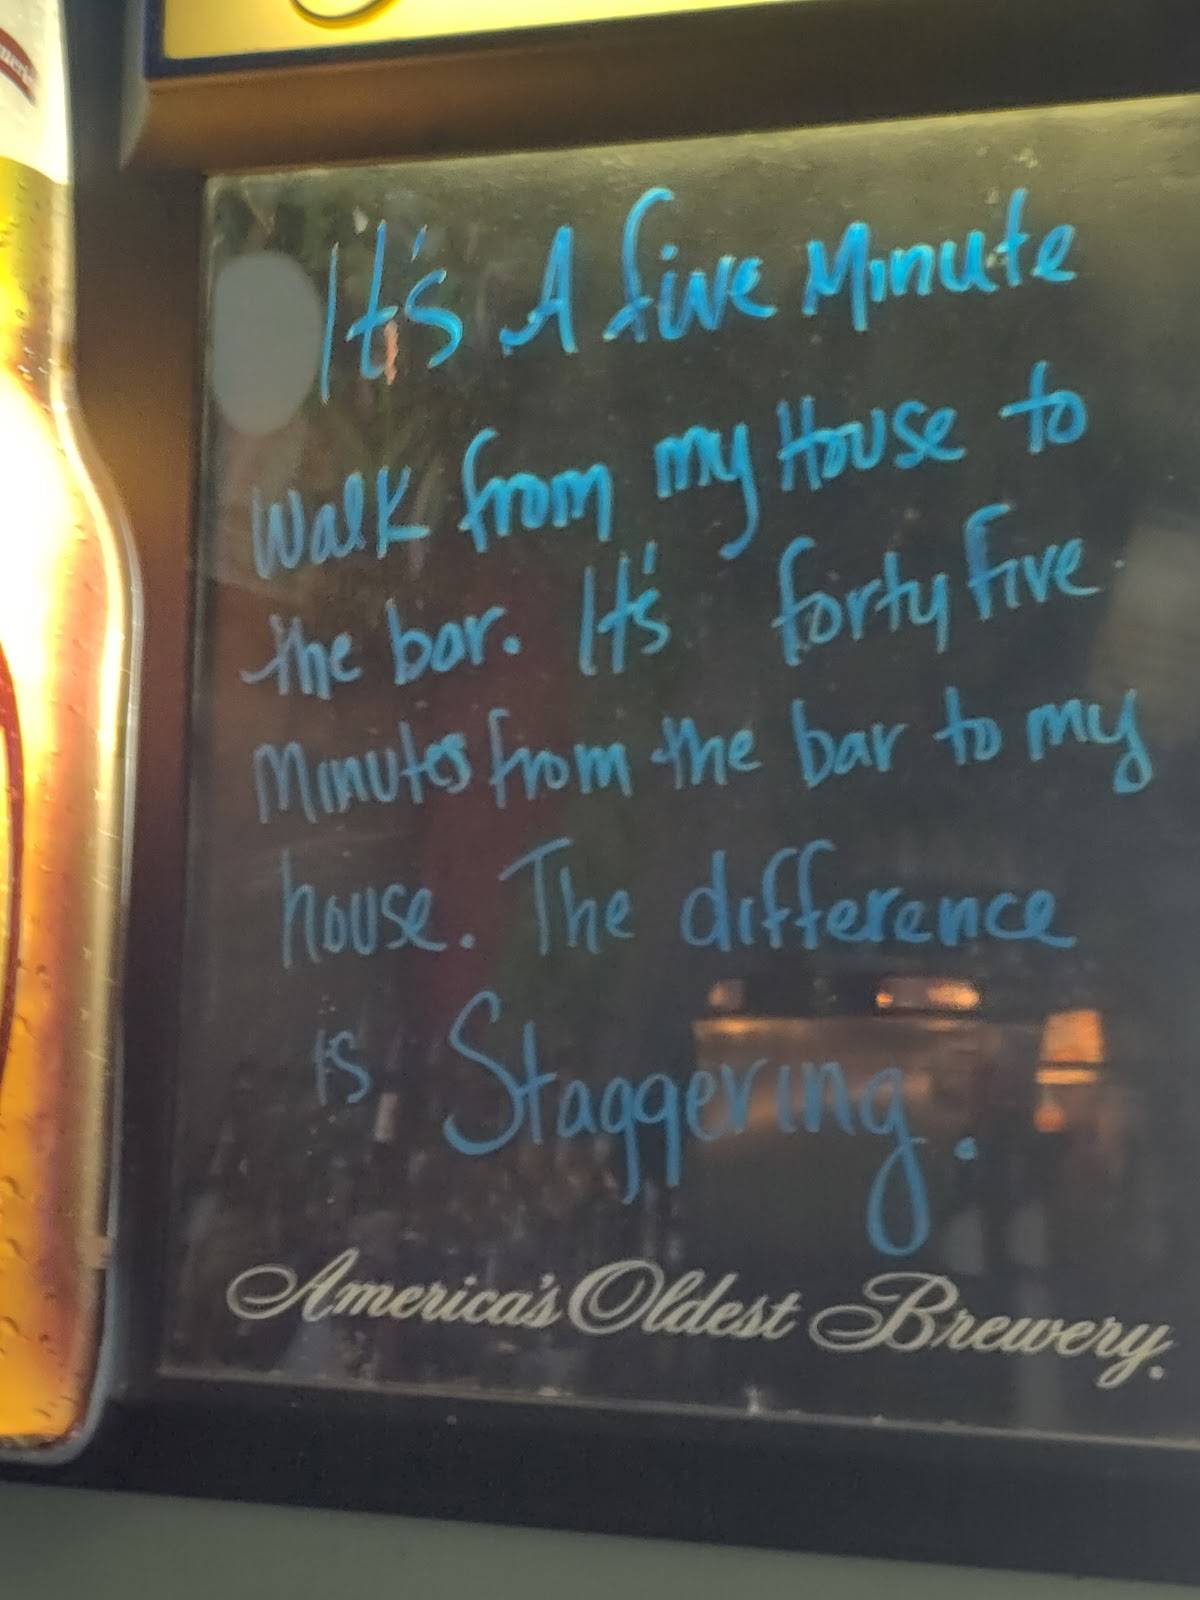 It's A five Minute
walk from my House to
the bar. It's forty five
Minutes from the bar to my
house. The difference
is Staggering.
America's Oldest Brewery.